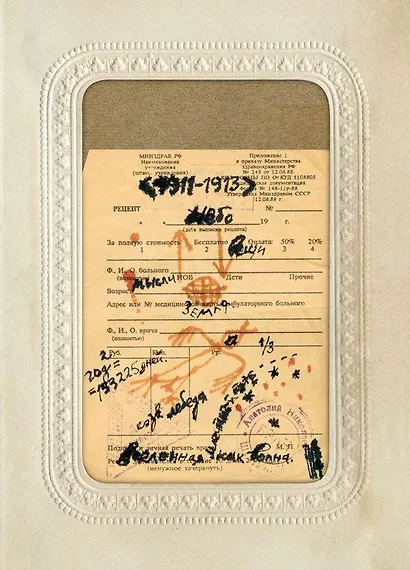 МИНЗДРАВ РФ
Наименование
учреждения
(штамп учреждения)
Приложение 1
к приказу Министерства
здравоохранения РФ
№ 145 от 12.08.88
ФОРМЫ ПО ОКУД 3108805
документация
№ 148-1/у-88
Утверждена Минздравом СССР
12.08.88 г.
<1911-1913>
РЕЦЕПТ №
Небо 19 г.
(дата выписки рецепта)
За полную стоимость Бесплатно Оплата: 50% 20%
1 2 3 4
Вещи
Ф., И., О. больного
ИОВ Дети Прочие
мысли
Возраст
Земля
Адрес или № медицинской карты амбулаторного больного
Ф., И., О. врача
(полностью)
Руб. Коп. Гр.
1/3
2
год =
дней.
лебедя
Анатолий
М. П.
Вселенная как
(ненужное зачеркнуть)